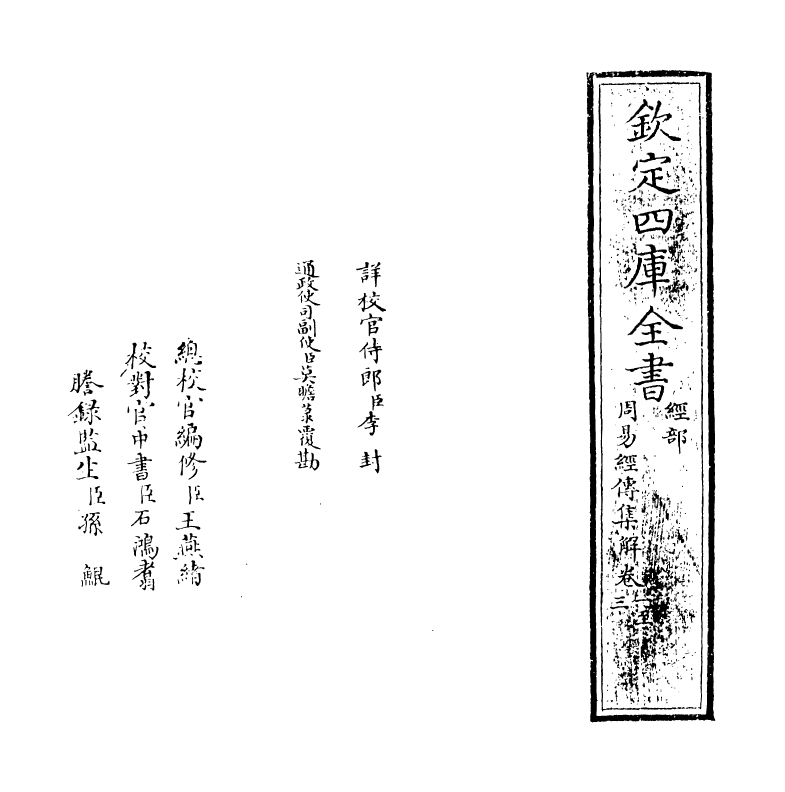 欽定四庫全書
經部
周易經傳集解卷一至三
詳校官侍郎臣李封
通政使司副使臣莫瞻菉覆勘
總校官編修臣王燕緒
校對官中書臣石鴻翥
謄錄監生臣孫鯤